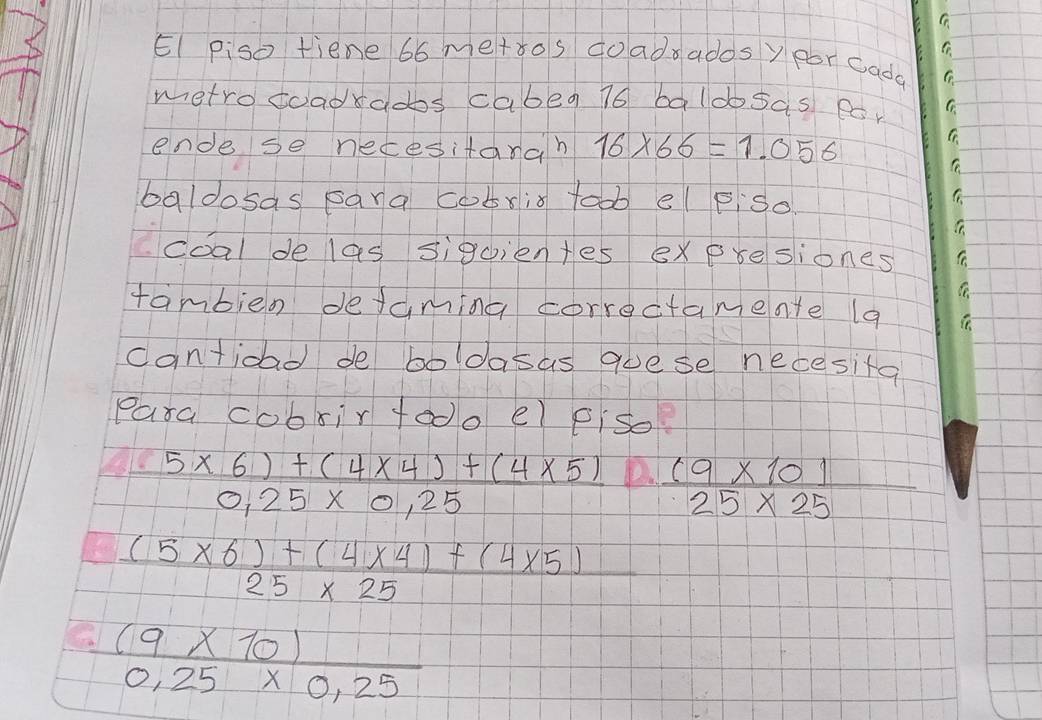 El piso tiene 66 metros coadrados y por cada
metro coadrados caben 16 baldosas por
ende, se necesitarán 16 x 66 = 1.056
baldosas para cobrir todo el piso.
¿coal de las sigoientes expresiones
tambien detamina correctamente la
cantidad de boldasas goe se necesita
para cobrir todo el piso?
A (5 x 6) + (4 x 4) + (4 x 5) D. (9 x 10)
0,25 x 0,25 25 x 25
B (5 x 6) + (4 x 4) + (4 x 5)
25 x 25
C. (9 x 10)
0,25 x 0,25